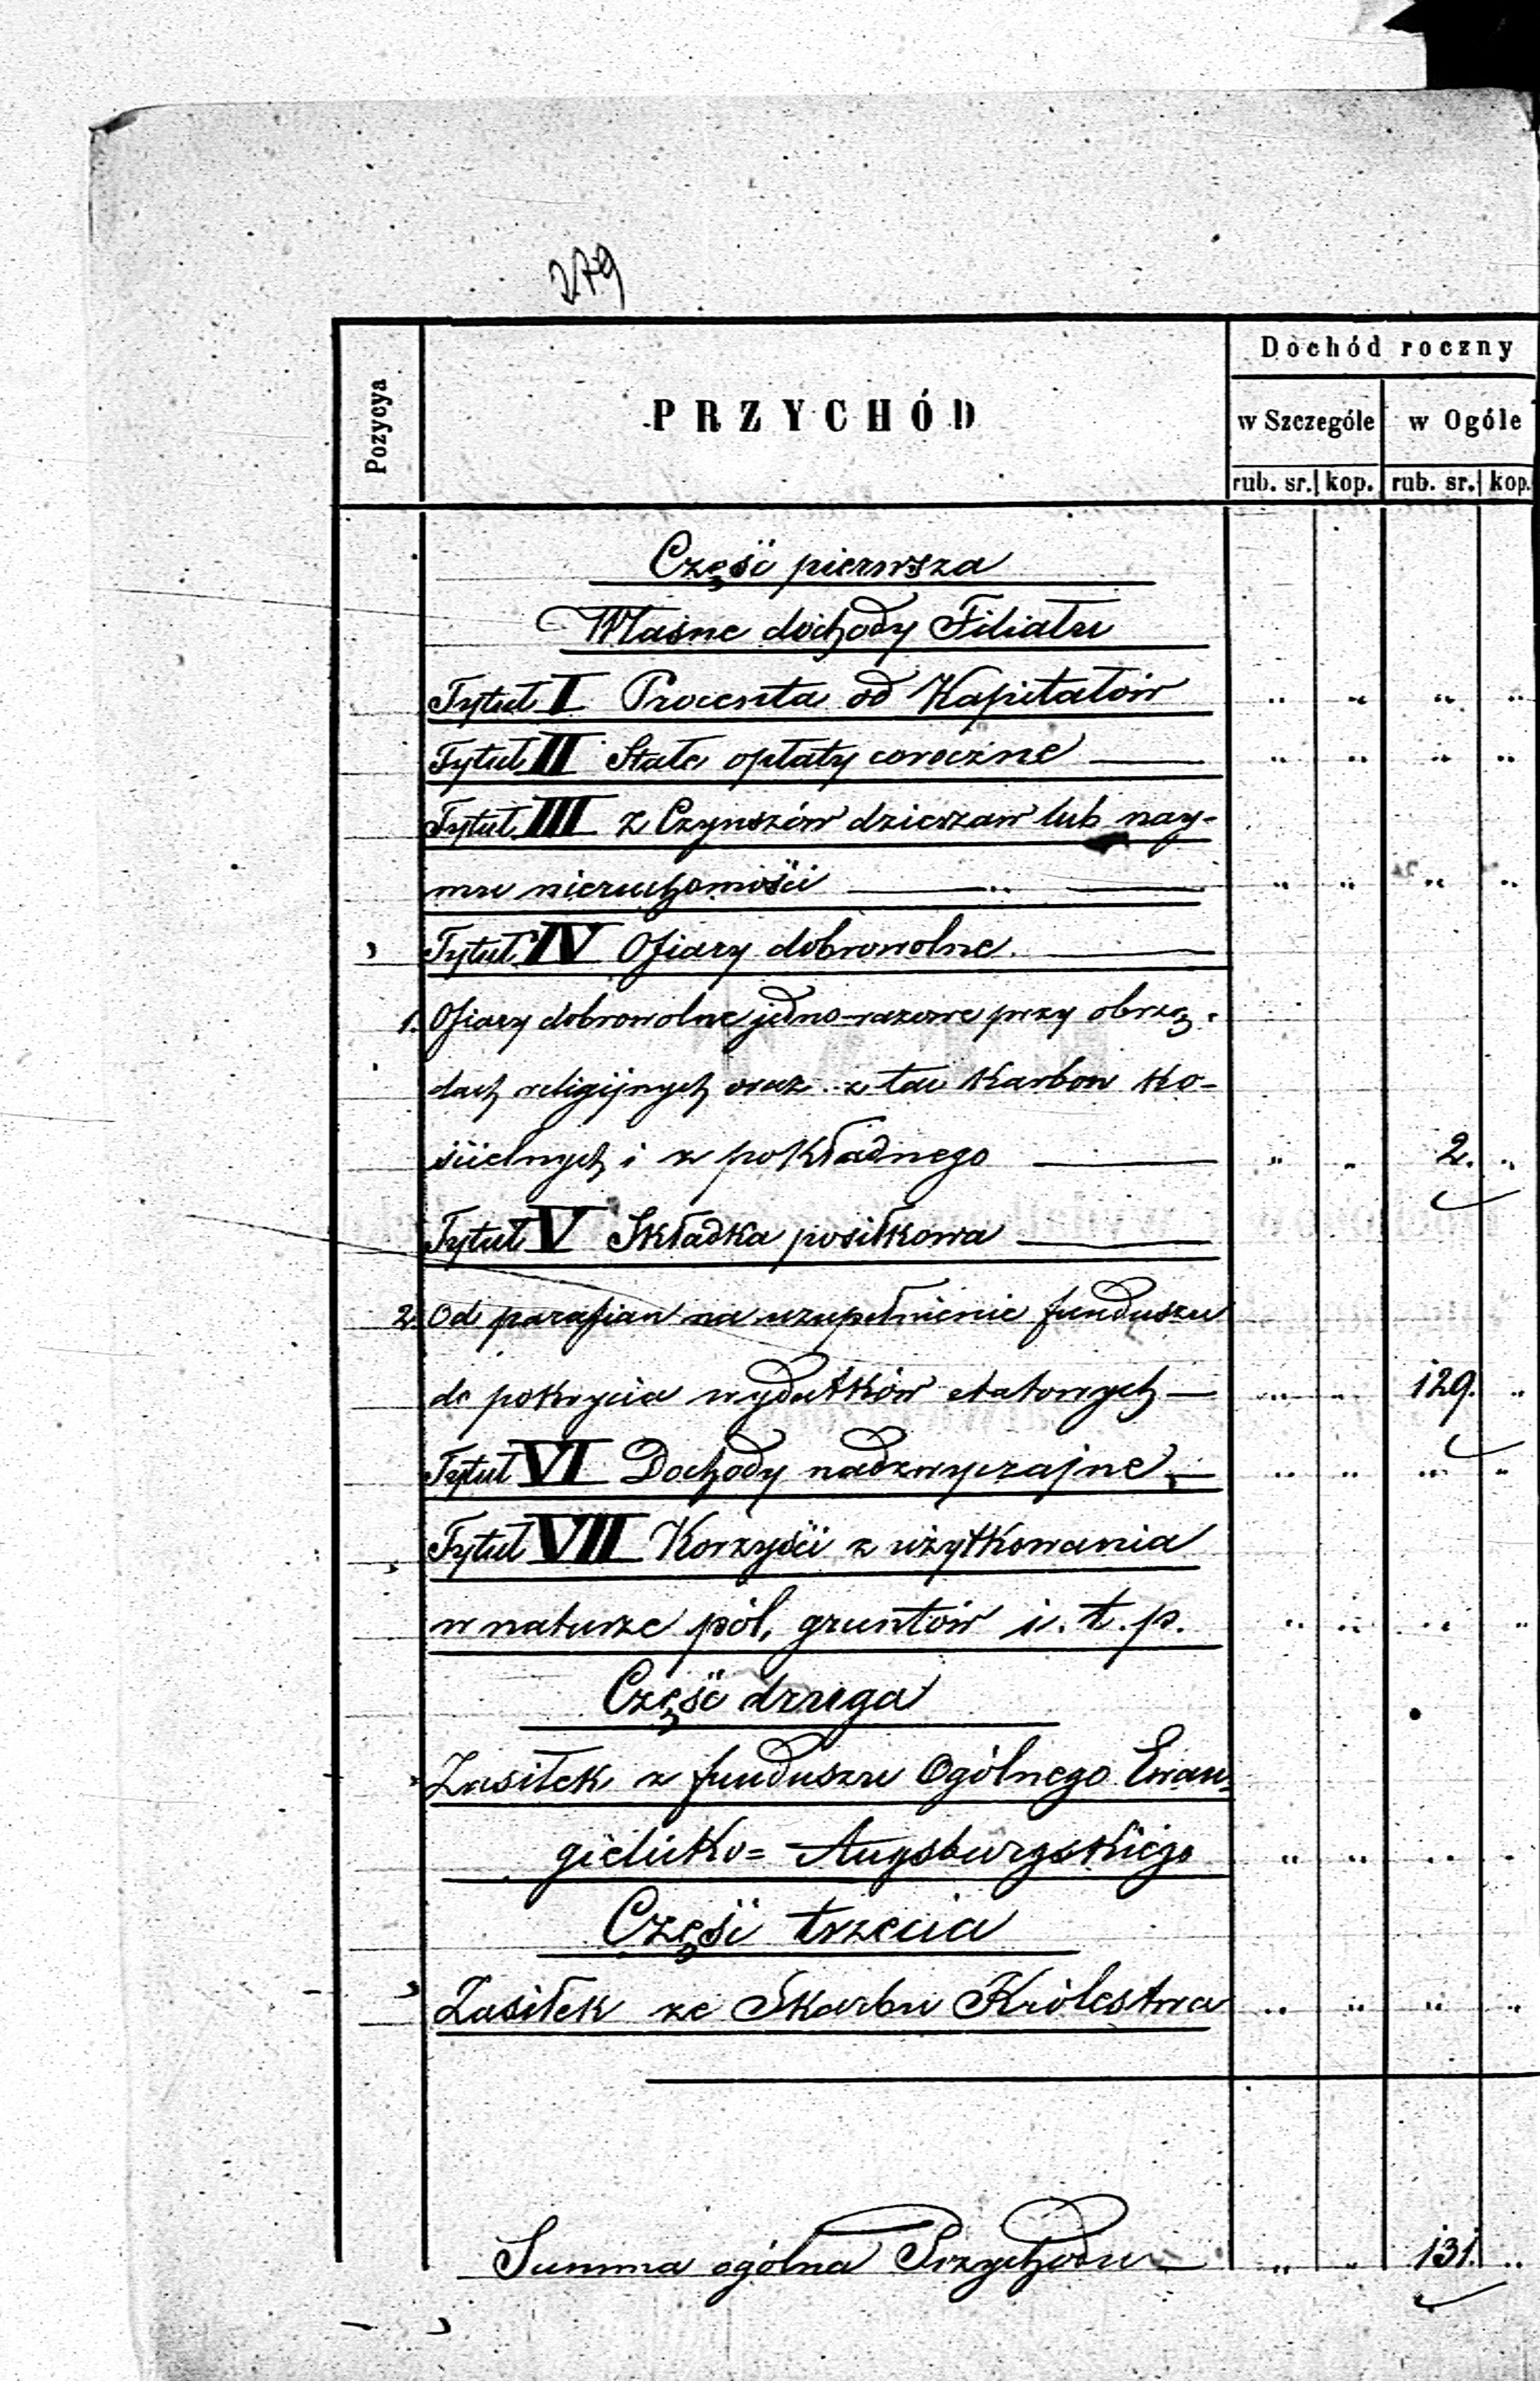 279
Pozycya
PRZYCHÓD
Dochód roczny
w Szczególe
w Ogóle
rub. sr. kop. rub. sr. kop.
Część pierwsza
Własne dochody Filiału
Tytuł I Procenta od Kapitałów „ „ „ „
Tytuł II Stałe opłaty coroczne — „ „ „ „
Tytuł III z Czynszów dzierzaw lub nay-
mu nieruchomości — „ — „ „ „ „
Tytuł IV Ofiary dobrowolne. —
1. Ofiary dobrowolne jedno-razowe przy obrzę-
dach religijnych oraz z tac Karbon Ko-
ścielnych i z pokładnego — „ „ 2. „
Tytuł V Składka posiłkowa —
2. Od parafian na uzupełnienie funduszu
do pokrycia wydatków etatowych — „ „ 129. „
Tytuł VI Dochody nadzwyczajne — „ „ „ „
Tytuł VII Korzyści z użytkowania
w naturze pól, gruntów i. t. p. „ „ „ „
Część druga
Zasiłek z funduszu Ogólnego Ewan-
gielicko= Augsburgskiego „ „ „ „
Część trzecia
Zasiłek ze Skarbu Królestwa „ „ „ „
Summa ogólna Przychodu — „ „ 131. „